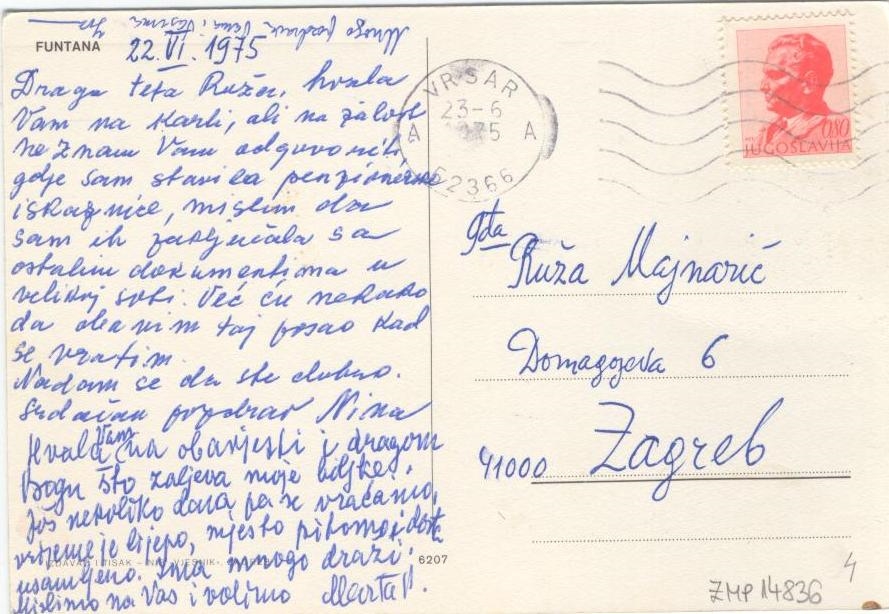 Mnogo pozdrava Vama i
FUNTANA
22.VI.1975
Draga teta Ruža, hvala
Vam na karti, ali na žalost
ne znam Vam odgovoriti
gdje sam stavila penzionerske
iskaznice, mislim da
sam ih zaključala sa
ostalim dokumentima u
velikoj sobi. Već ću nekako
da obavim taj posao kad
se vratim.
Nadam se da ste dobro.
Srdačan pozdrav Nina
Hvala Vam na obavjesti i dragom
Bogu što zaljeva moje biljke.
Još nekoliko dana pa se vraćamo,
vrijeme je lijepo, mjesto pitomo i dosta
usamljeno. Ima mnogo draži.
Mislimo na Vas i volimo Marta
IZDAVAČ I TISAK - "VJESNIK",
6207
VRSAR
23-6
75
A A
52366
0.80
JUGOSLAVIJA
gđa
Ruža Majnarić
Domagojeva 6
41000 Zagreb
ZMP 14836
4